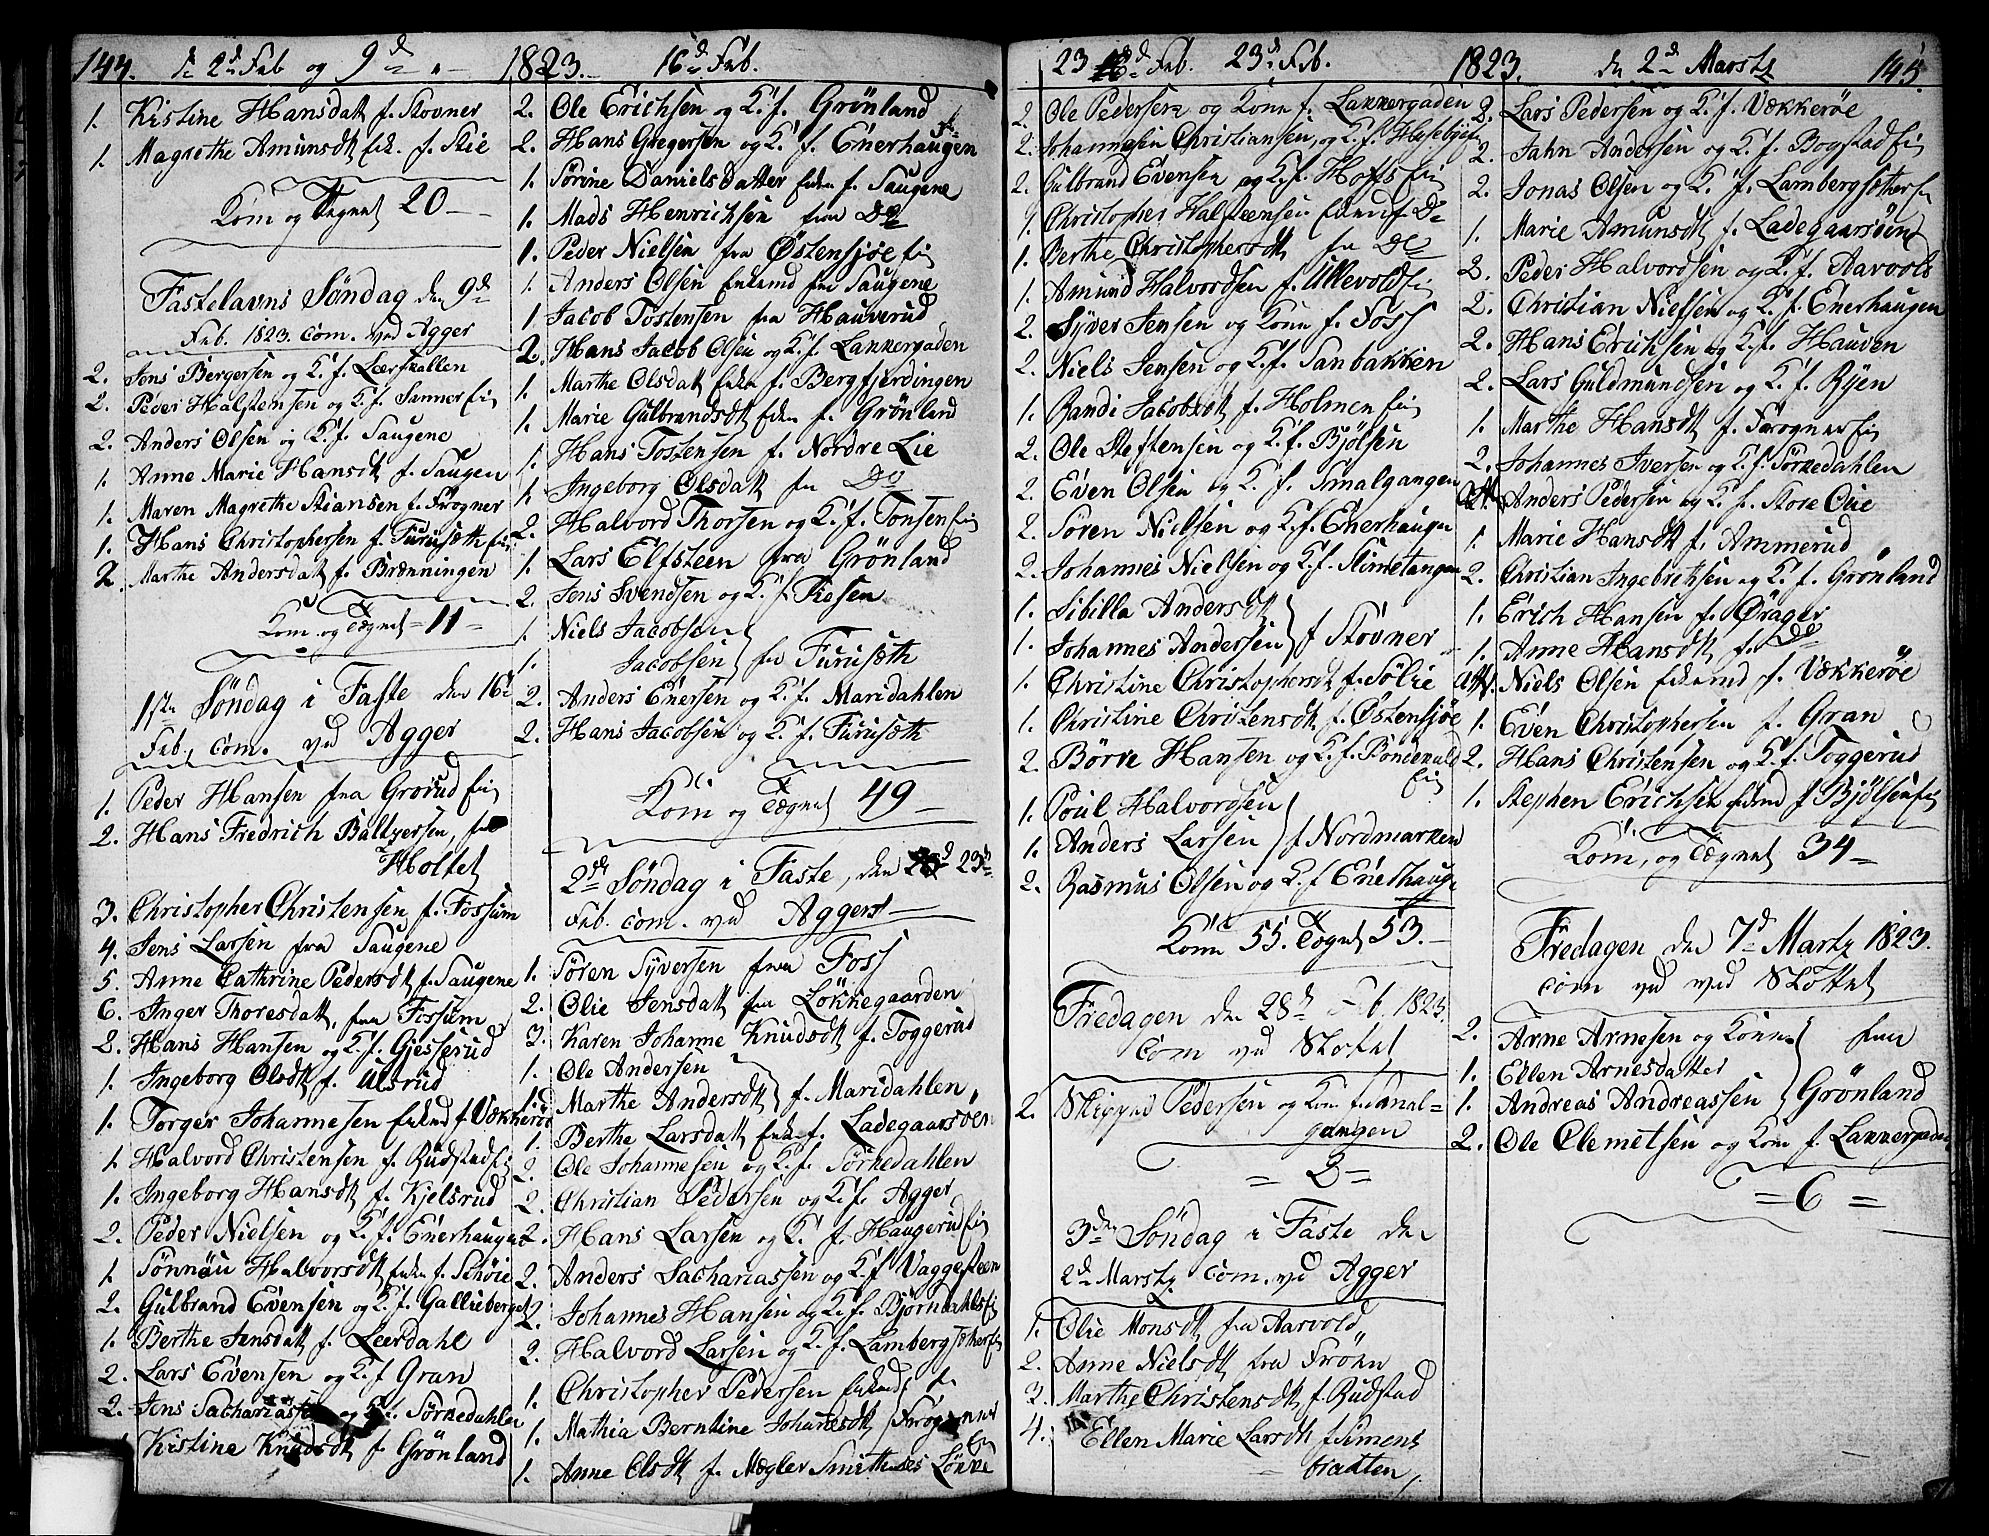 144. d 2d Feb og 9de 1823. 16d Feb.
1. Kistine Hansdat f. Stovner
1. Magrethe Amunsdt f. Skie
Kom og Tegnet 20
Fastelavns Søndag den 9de
Feb. 1823. Com. ved Agger
2. Jens Bergersen og K. f. Leerskallen
2. Peder Halstensen og K. f. Sanner Ei
2. Anders Olsen og K. f. Saugene
1. Anne Marie Hansdt f. Saugen
1. Maren Magrethe Stiansen f. Frogner
1. Hans Christophersen f. Furusæth Ei
2. Marthe Andersdat f. Brænningen
Kom og Tegnet = 11 =
1ste Søndag i Faste den 16d
Feb. com. ved Agger
1. Peder Hansen fra Grorud Ei
2. Hans Fredrich Baltzersen, fra
Holtet
3. Christopher Christensen f. Fossum
4. Jens Larsen fra Saugene
5. Anne Cathrine Pedersdt f. Saugene
6. Inger Thoresdatt, fra Fossum
2. Hans Hansen og K. f. Gjesserud
1. Ingeborg Olsdt f. Ulsrud
1. Torger Johannesen Enkmd f Vækkerøe
1. Halvord Christensen f. Rudstad Ei
1. Ingeborg Hansdt f. Kjelsrud
2. Peder Nielsen og K. f. Enerhaugen
1. Sønnau Halvorsdt Enke f. Schøie
2. Gulbrand Evensen og K. f. Gallieberget
1. Berthe Jensdatt f. Leerdahl
2. Lars Evensen og K. f Gran
2. Jens Sachariassen og K. f. Sørkedahlen
Kistine Knudsdt f. Grønland
2. Ole Erichsen og K. f. Grønland
2. Hans Gregersen og K. f. Enerhaugen
1. Sørine Daniels datter Enke f. Saugene
1. Mads Henrichsen fra Do
1. Peder Nielsen fra Østensjøe Ei
1. Anders Olsen Enkmd fra Saugene
1. Jacob Tostensen fra Hauverud
2. Hans Jacob Olsen og K. f. Lakkergaden
1. Marthe Olsdatt Enke f. Bergfjerdingen
1. Marie Gulbrandsdt Enke f. Grønland
1. Hans Tostensen f. Nordre Lie
1. Ingeborg Olsdatt fra Do
2. Halvord Thorsen og K. f. Tonsen Ei
1. Lars Elfsteen fra Grønland
2. Jens Svendsen og K. f Kesen
1. Niels Jacobsen
1. Jacobsen fra Furusæth
2. Anders Enersen og K. f. Maridahlen
2. Hans Jacobsen og K. f. Furusæth
Kom og Tegnet 49
2de Søndag i Faste, den 23d
Feb. com. ved Agger
1. Søren Syversen fra Foss
2. Olie Jensdatt fra Løkkegaarden
3. Karen Johanne Knudsdt f. Toggerud
1. Ole Andersen
1. Marthe Andersdt f. Maridahlen
1. Berthe Larsdatt Enke f. Ladegaarsøen
2. Ole Johannesen og K. f. Sørkedahlen
2. Christian Pedersen og K. f. Agger
2. Hans Larsen og K. f. Haugerud Ei
2. Anders Sachariassen og K. f Vaggesteen
2. Johannes Hansen og K. f. Bjørndahls Ei
2. Halvord Larsen og K. f. Lambergsæther Ei
1. Christopher Pedersen Enkmd f.
1. Mathia Berntine Johanesdt Frogner
Ei
1. Anne Olsdt f. Mægler Smithes Løkke
23 Feb. 23d Feb. 1823. den 2d Marsty 145
2. Ole Pedersen og Kone f. Lakkergaden
2. Johannesen Christiansen, og K. f. Husebye Ei
2. Gulbrand Evensen og K. f. Hoffs Ei
1. Christopher Halsteensen Enkmd f Do
1. Berthe Christophersdt fra Do
1. Amund Halvordsen f. Ullevolds Ei
2. Syver Jensen og Kone f. Foss
2. Niels Jensen og K. f. Sanbakken
1. Randi Jacobsdt f. Holmen Ei
2. Ole Steffensen og K. f. Bjølsen
2. Even Olsen og K. f. Smalgangen
2. Søren Nielsen og K. f. Enerhaugen
2. Johannes Nielsen og K. f. Slimetangen
1. Sibilla Andersdt
1. Johannes Andersen f Stovner
1. Christine Christophersdt f. Sølie
1. Christine Christensdt f. Østensjøe
2. Børre Hansen og K. f. Sondevald
Ei
1. Poul Halvordsen
1. Anders Larsen f Nordmarken
2. Rasmus Olsen og K. f Enerhauge
Kom 55. Tegnet 53.
Fredagen den 28d Feb. 1823.
Com ved Slottet
2. Pedersen og Kone f. Smal=
gangen
= 2 =
3de Søndag i Faste den
2d Marsty com. ved Agger
1. Olie Monsdt fra Aarvold
2. Anne Nielsdt fra Frøen
3. Marthe Christensdt f. Rudstad
4. Ellen Marie Larsdt f Simens
braaten
2. Lars Pedersen og K. f. Vækkerøe
2. Jahn Andersen og K. f. Bogstad Ei
2. Jonas Olsen og K. f. Lambergsæther Ei
1. Marie Amunsdt f. Ladegaarsøen
2. Peder Halvordsen og K. f. Aarvols
2. Christian Nielsen og K. f Enerhaugen
2. Hans Erichsen og K. f. Hauven
2. Lars Guldmundsen og K. f. Ryen
1. Marthe Hansdt f. Frogner Ei
2. Johannes Iversen og K. f. Sørkedahlen
Anders Pedersen og K. f. Store Øie
1. Marie Hansdt f. Ammerud
2. Christian Ingebrethsen og K. f. Grønland
1. Erich Hansen f. Ørager
1. Anne Hansdt f. Do
Niels Olsen Enkmd f. Vækkerøe
1. Even Christophersen f. Gran
2. Hans Christensen og K. f. Toggerud
1. Stephen Erichsen Enkmd f Bjølsen Ei
Kom, og Tegnet 34
Fredagen den 7d Marty 1823.
com ved ved Slottet
2. Arne Arnesen og Kone fra
1. Ellen Arnesdatter
1. Andreas Andreassen Grønland
2. Ole Clemetsen og Kone f Lakkergaden
= 6 =